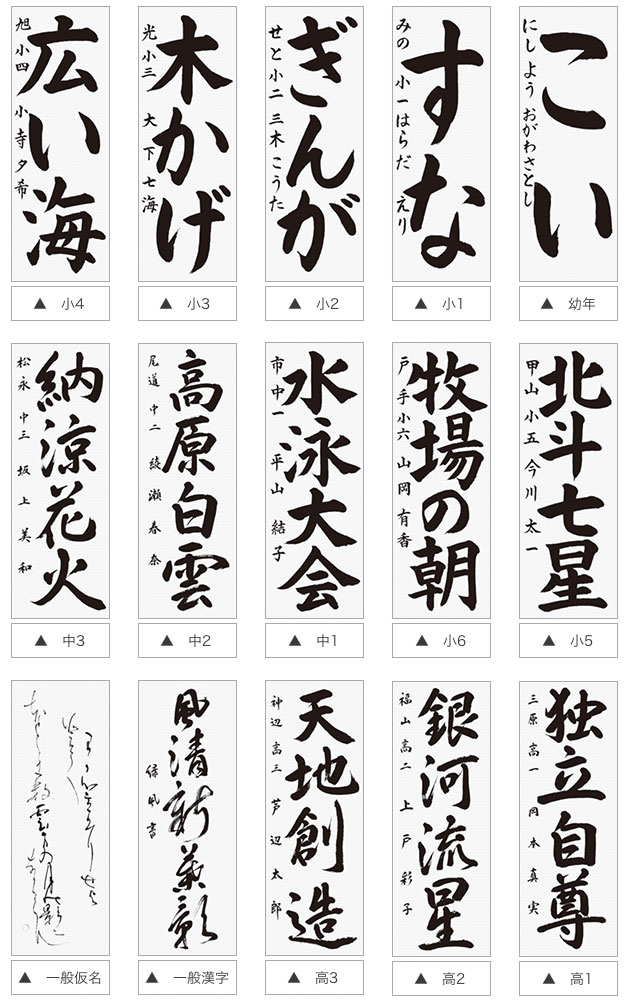 こい
にし よう おがわさとし
▲ 幼年
すな
みの 小一 はらだ えり
▲ 小1
ぎんが
せと 小二 三木 こうた
▲ 小2
木かげ
光 小三 大下 七海
▲ 小3
広い海
旭 小四 小寺 夕希
▲ 小4
北斗七星
甲山 小五 今川 太一
▲ 小5
牧場の朝
戸手 小六 山岡 有香
▲ 小6
水泳大会
市 中一 平山 結子
▲ 中1
高原白雲
尾道 中二 綾瀬 春奈
▲ 中2
納涼花火
松永 中三 坂上 美和
▲ 中3
独立自尊
三原 高一 岡本 真実
▲ 高1
銀河流星
福山 高二 上戸 彩子
▲ 高2
天地創造
神辺 高三 芦辺 太郎
▲ 高3
風清新葉影
緑風書
▲ 一般漢字
▲ 一般仮名